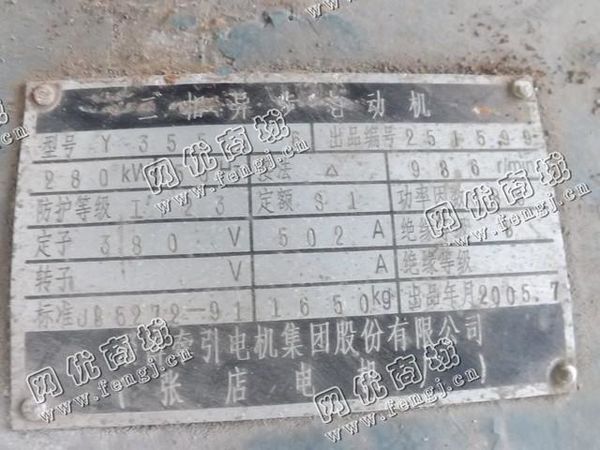 三相异步电动机
型号 Y 355 6 出品编号 251599
280 kW 接法 △ 986 r/min
防护等级 I 23 定额 S1 功率因数
定子 380 V 502 A 绝缘等级
转子 V A 绝缘等级
标准JB5272-91 1650kg 出品年月2005.7
牵引电机集团股份有限公司
(张店电机 )
网优商城
www.fengj.cn
网优商城
www.fengj.cn
网优商城
www.fengj.cn
网优商城
www.fengj.cn
网优商城
www.fengj.cn